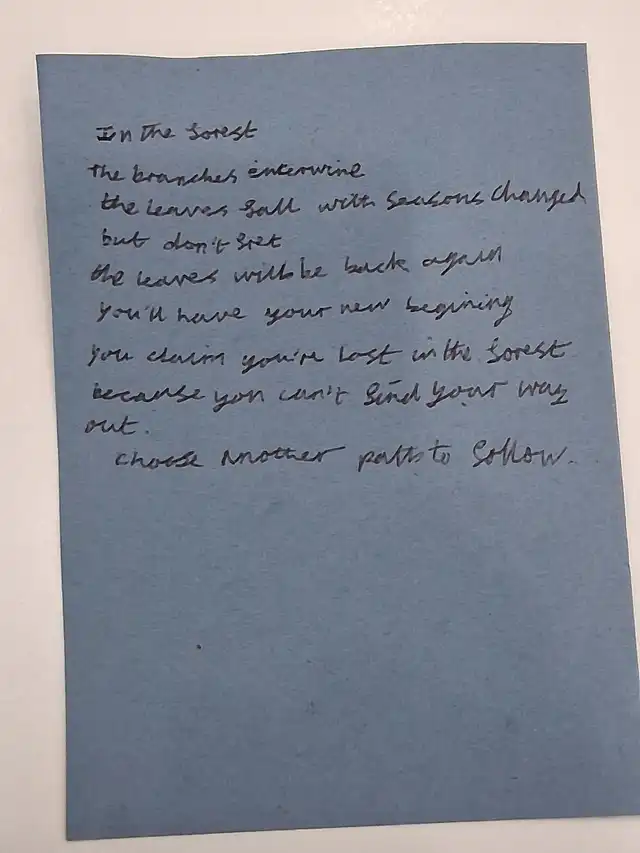 In the forest
the branches enterwine
the leaves fall with seasons changed
but don't fret
the leaves will be back again
you'll have your new begining
you claim you're lost in the forest
because you can't find your way
out.
choose another path to follow.